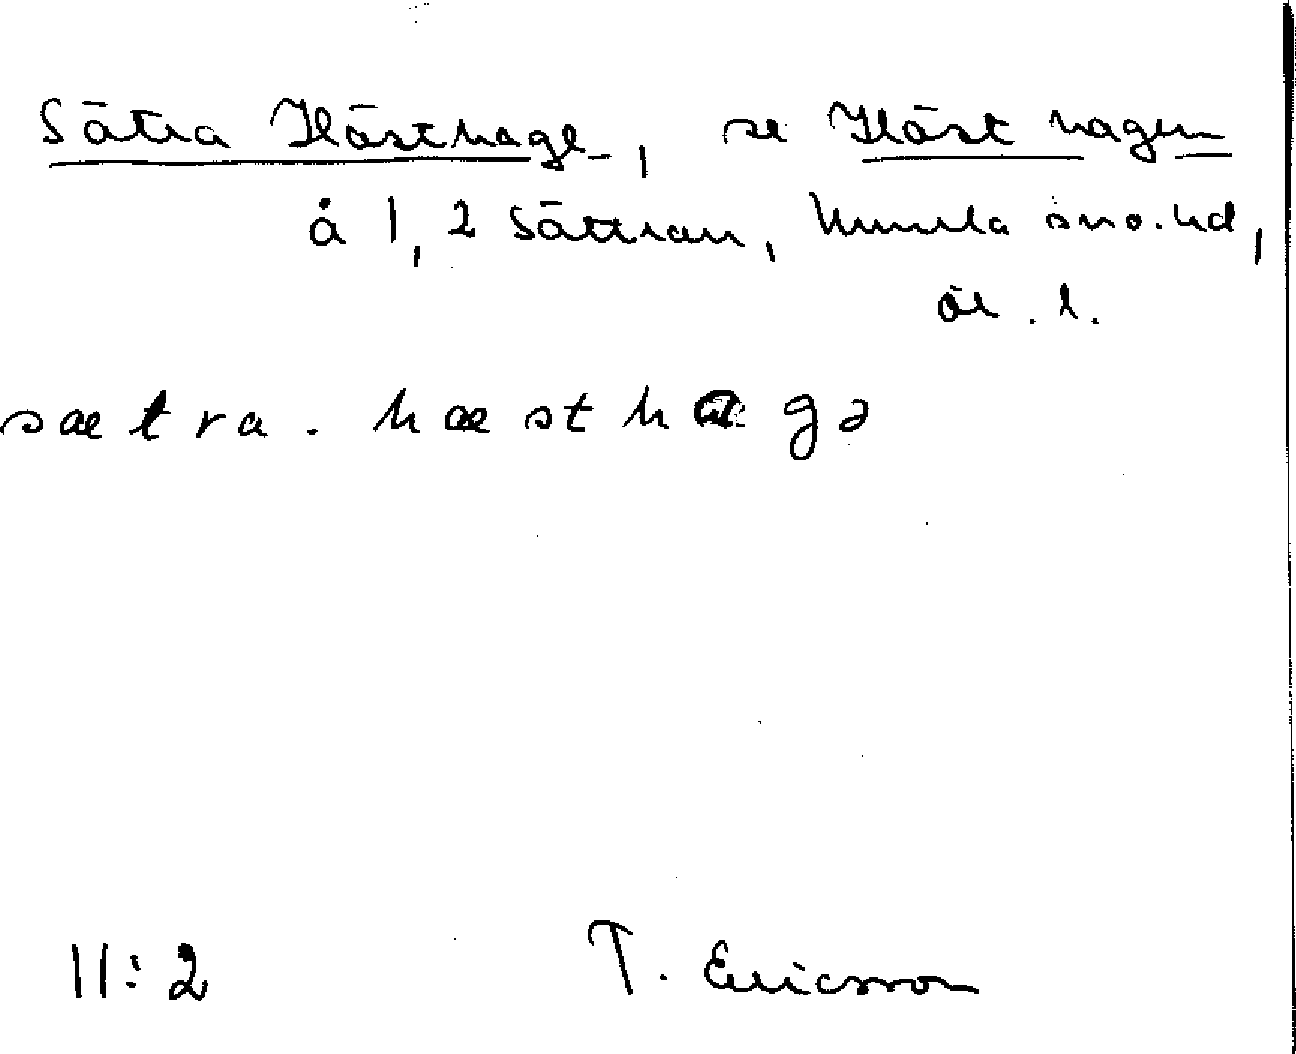 Sätra Hästhage, se Hästhagen
å 1, 2 Sättran, Kumla sn o. hd,
ör. l.
sætra. hæsthɑgə
11:2 T. Ericsson